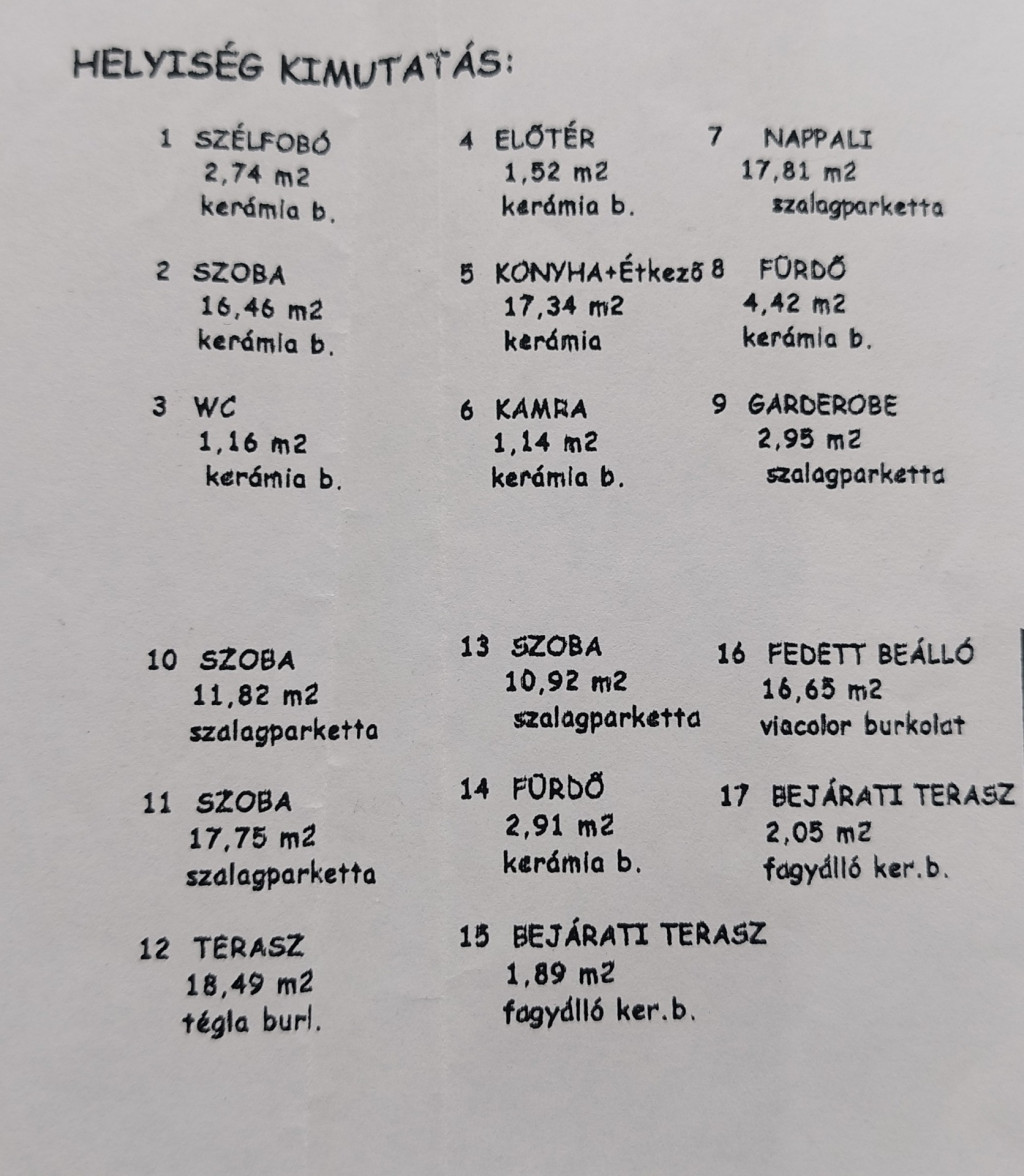 HELYISÉG KIMUTATÁS:
1 SZÉLFOBÓ
2,74 m2
kerámia b.
2 SZOBA
16,46 m2
kerámia b.
3 WC
1,16 m2
kerámia b.
4 ELŐTÉR
1,52 m2
kerámia b.
5 KONYHA+Étkező
17,34 m2
kerámia
6 KAMRA
1,14 m2
kerámia b.
7 NAPPALI
17,81 m2
szalagparketta
8 FÜRDŐ
4,42 m2
kerámia b.
9 GARDEROBE
2,95 m2
szalagparketta
10 SZOBA
11,82 m2
szalagparketta
11 SZOBA
17,75 m2
szalagparketta
12 TERASZ
18,49 m2
tégla burl.
13 SZOBA
10,92 m2
szalagparketta
14 FÜRDŐ
2,91 m2
kerámia b.
15 BEJÁRATI TERASZ
1,89 m2
fagyálló ker.b.
16 FEDETT BEÁLLÓ
16,65 m2
viacolor burkolat
17 BEJÁRATI TERASZ
2,05 m2
fagyálló ker.b.